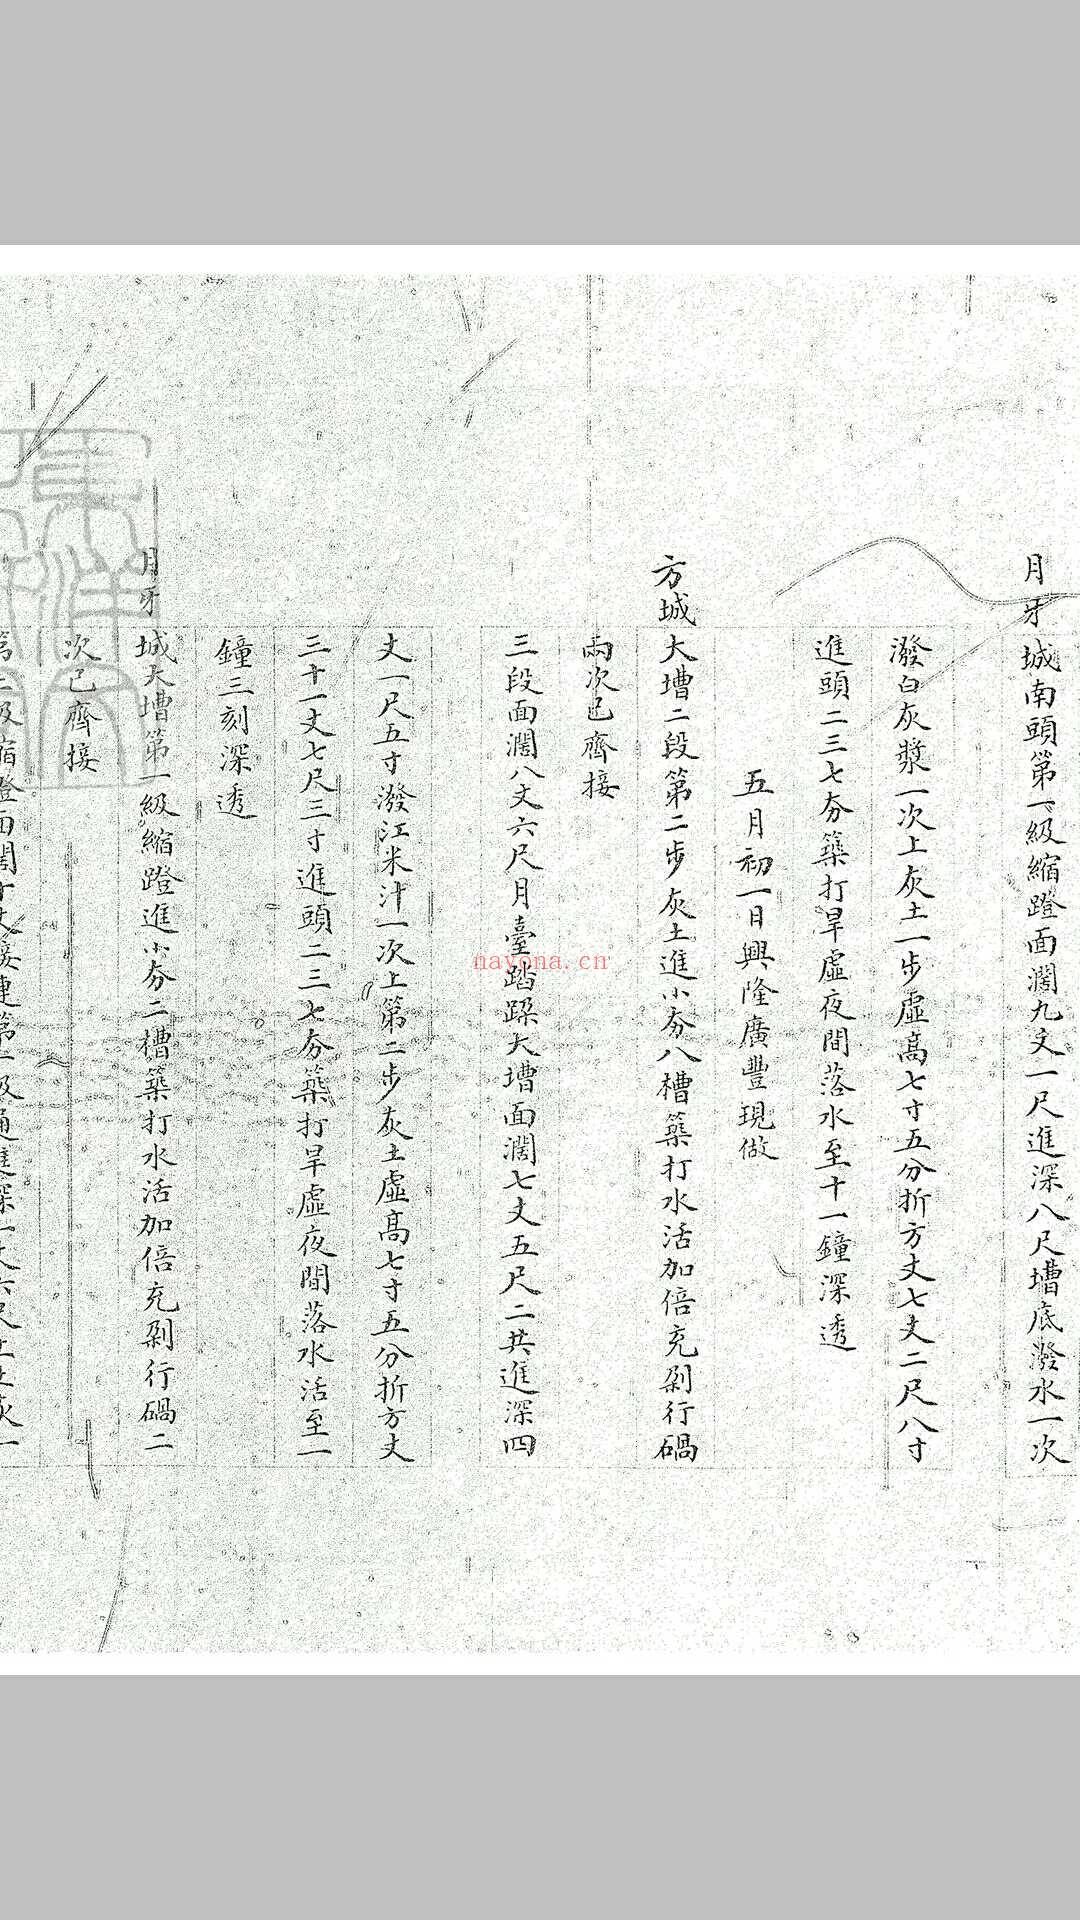 月牙城南頭第一級縮蹬面濶九丈一尺進深八尺壋底潑水一次
潑白灰漿一次上灰土一步虛高七寸五分折方丈七丈二尺八寸
進頭二三七夯築打旱虛夜間落水至十一鐘深透
五月初一日興隆廣豐現做
方城大壋二段第二步灰土進小夯八槽築打水活加倍充剁行硪
兩次已齊接
三段面濶八丈六尺月臺踏跺大壋面濶七丈五尺二共進深四
丈一尺五寸潑江米汁一次上第二步灰土虛高七寸五分折方丈
三十一丈七尺三寸進頭二三七夯築打旱虛夜間落水活至一
鐘三刻深透
月牙城大壋第一級縮蹬進小夯二槽築打水活加倍充剁行硪二
次已齊接
第二級縮蹬面濶十丈接連第一級通進深一丈六尺上立灰一
nayona.cn